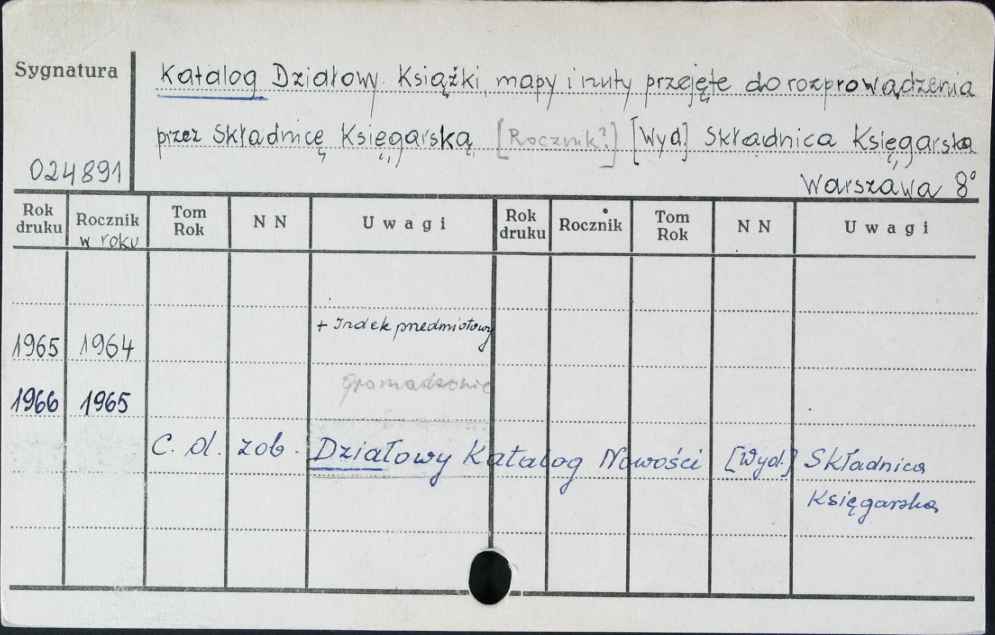 Sygnatura
Katalog Działowy. Książki, mapy i nuty przejęte do rozprowadzenia
przez Składnicę Księgarską [Rocznik?] [Wyd.] Składnica Księgarska
024891
Warszawa 8°
Rok druku Rocznik w roku Tom Rok NN Uwagi Rok druku Rocznik Tom Rok NN Uwagi
+ Indek przedmiotowy
1965 1964
Gromadzenie
1966 1965
C. d. zob. Działowy Katalog Nowości [Wyd.] Składnica
Księgarska